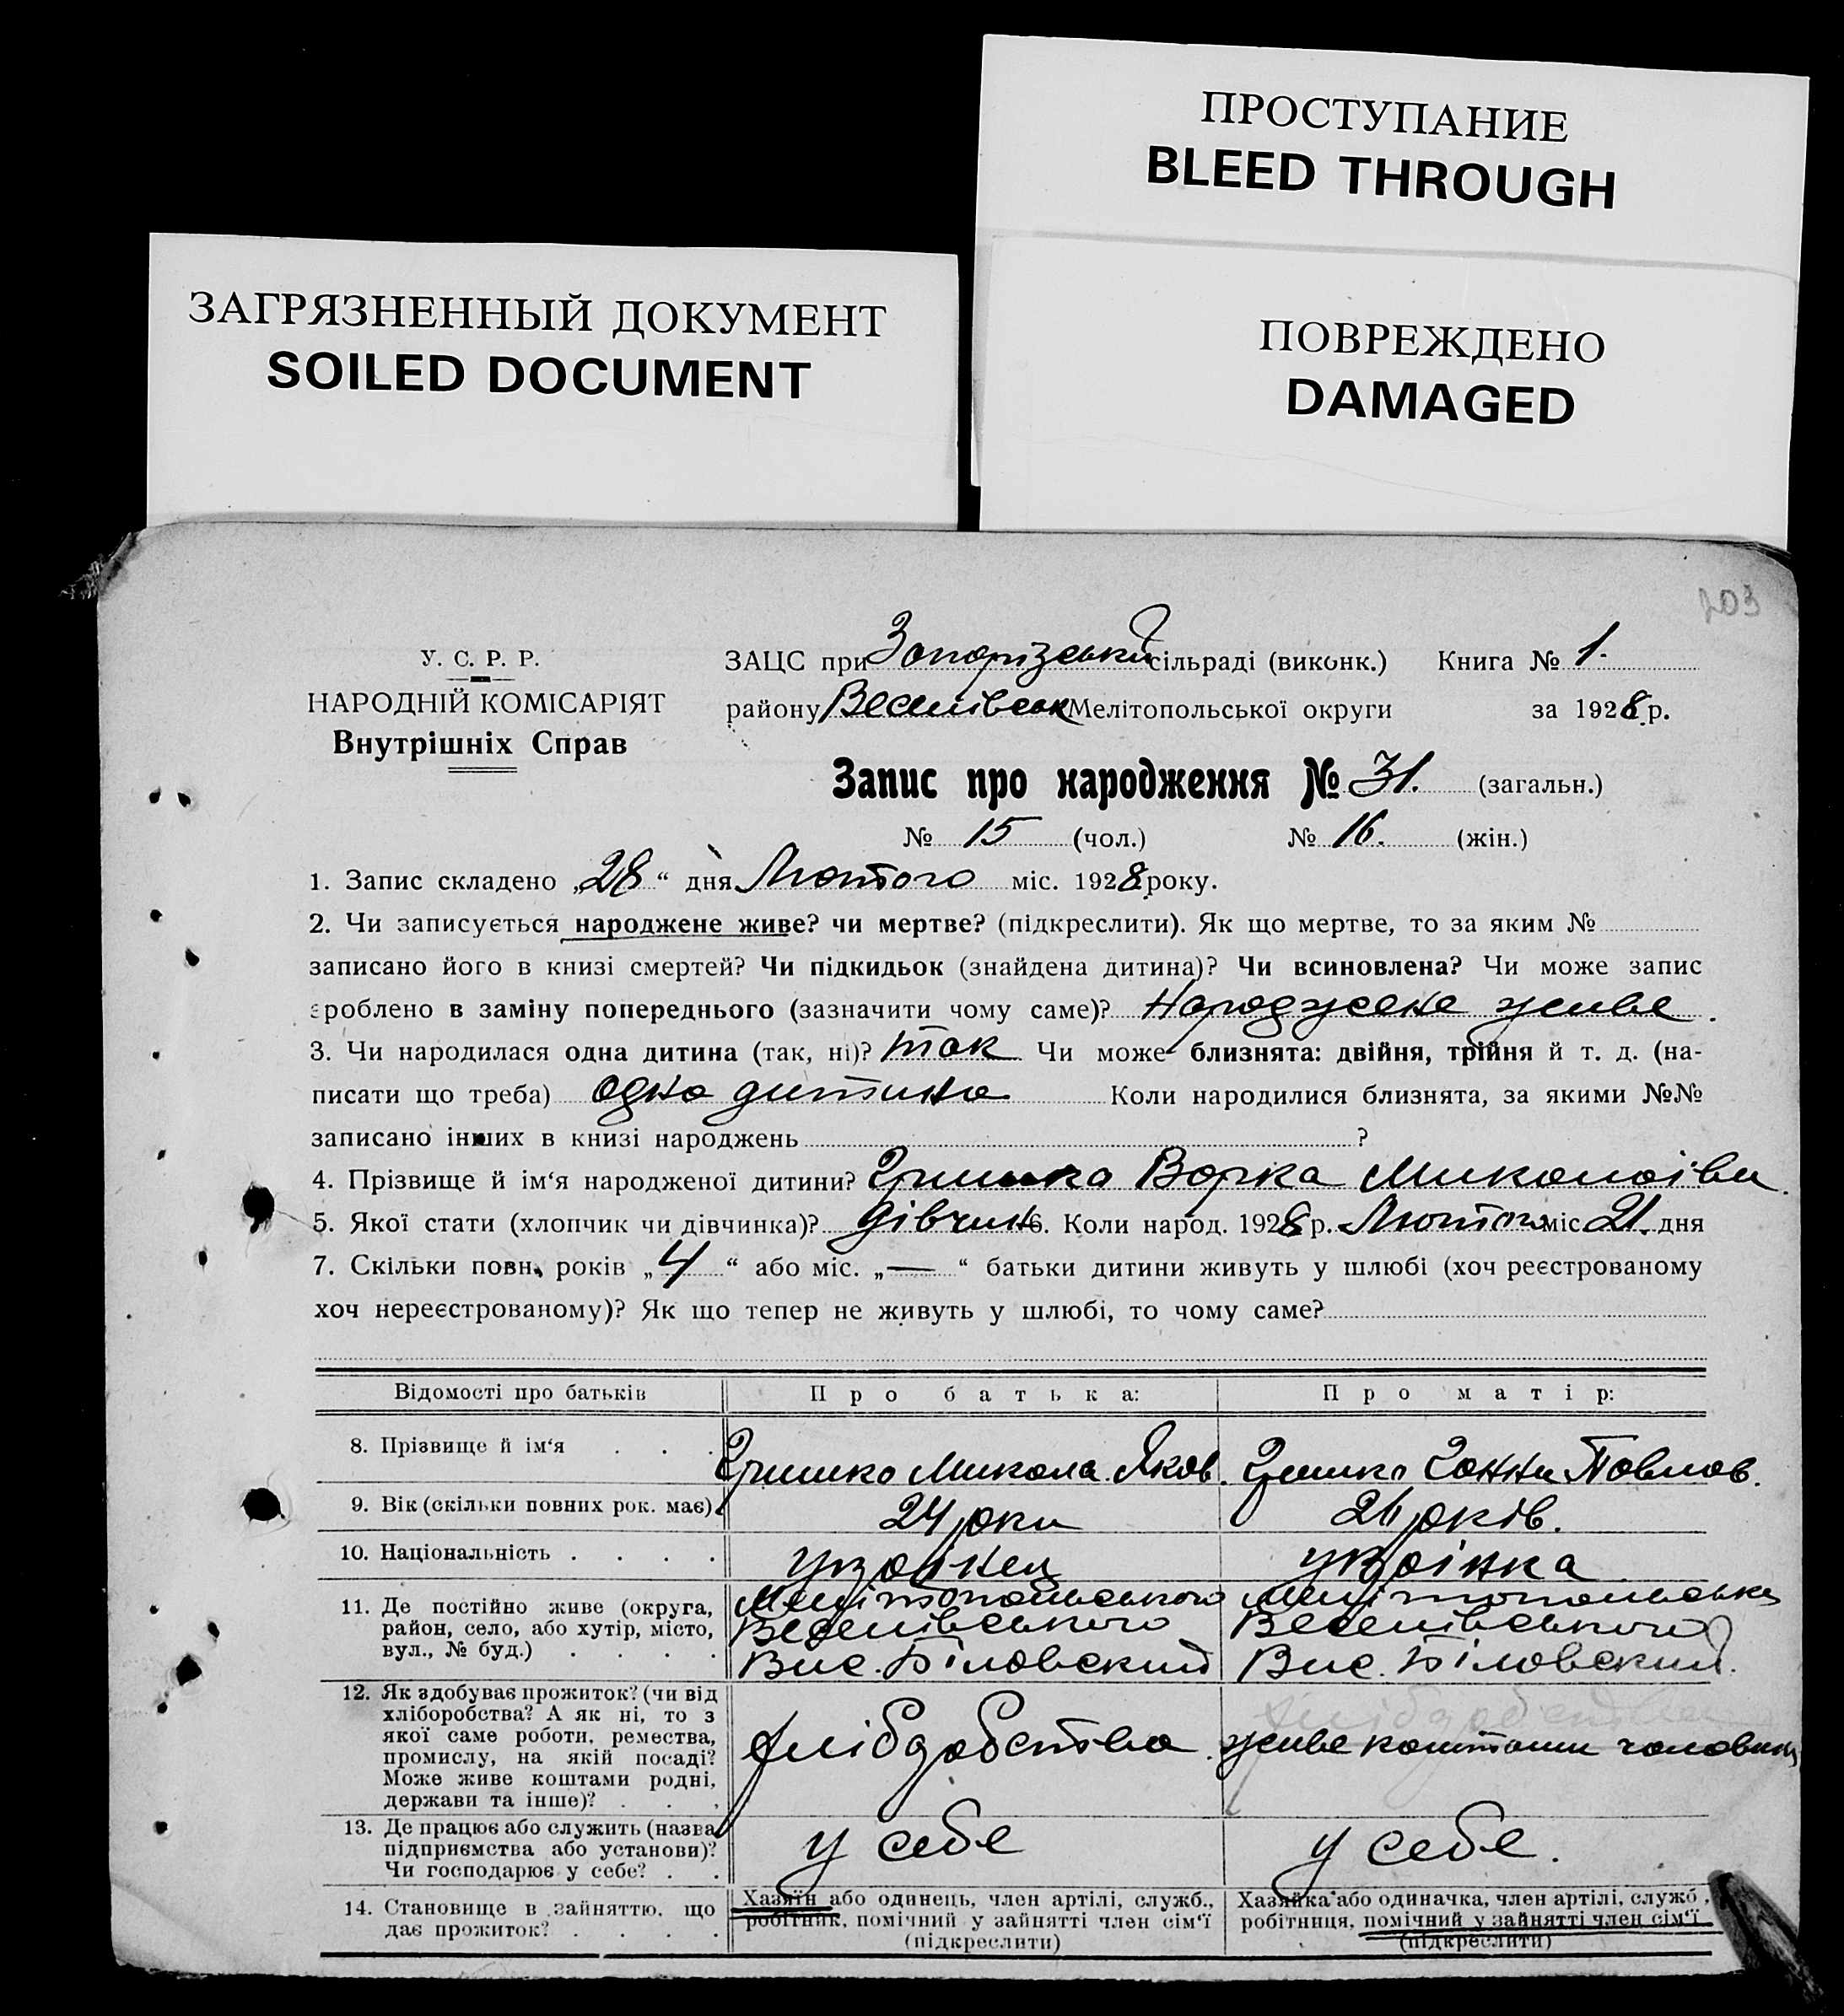 ПРОСТУПАНИЕ
BLEED THROUGH
ЗАГРЯЗНЕННЫЙ ДОКУМЕНТ
SOILED DOCUMENT
ПОВРЕЖДЕНО
DAMAGED
203
У. С. Р. Р.
НАРОДНІЙ КОМІСАРІЯТ
Внутрішніх Справ
ЗАЦС при Запорізській сільраді (виконк.) Книга № 1.
району Веселівськ Мелітопольської округи за 1928 р.
Запис про народження № 31. (загальн.)
№ 15 (чол.) № 16. (жін.)
1. Запис складено „28“ дня Лютого міс. 1928 року.
2. Чи записується народжене живе? чи мертве? (підкреслити). Як що мертве, то за яким №
записано його в книзі смертей? Чи підкидьок (знайдена дитина)? Чи всиновлена? Чи може запис
зроблено в заміну попереднього (зазначити чому саме)? Народжене живе.
3. Чи народилася одна дитина (так, ні)? так Чи може близнята: двійня, трійня й т. д. (на-
писати що треба) одна дитина Коли народилися близнята, за якими №№
записано інших в книзі народжень ?
4. Прізвище й ім‘я народженої дитини? Гришко Ворка Миколаівн.
5. Якої стати (хлопчик чи дівчинка)? дівчин 6. Коли народ. 1928 р. Лютого міс 21. дня
7. Скільки повн. років „4“ або міс. „—“ батьки дитини живуть у шлюбі (хоч реєстрованому
хоч нереєстрованому)? Як що тепер не живуть у шлюбі, то чому саме?
Відомості про батьків Про батька: Про матір:
8. Прізвище й ім‘я . . . Гришко Микола Яков. Гришко Ганна Повлов.
9. Вік (скільки повних рок. має) 24 роки 26 років.
10. Національність . . . . українец українка
11. Де постійно живе (округа, район, село, або хутір, місто, вул., № буд.) . . . .
Мелітопольського
Веселівського
Вис. Біловский
Мелітопольська
Веселівського
Вис. Біловский.
12. Як здобуває прожиток? (чи від хліборобства? А як ні, то з якої саме роботи, ремества, промислу, на якій посаді? Може живе коштами родні, держави та інше)? . . .
хлібдобство живе коштами чоловіка
13. Де працює або служить (назва підприємства або установи)? Чи господарює у себе? . .
у себе у себе.
14. Становище в зайняттю, що дає прожиток? . . . .
Хазяїн або одинець, член артілі, служб., робітник, помічний у зайнятті член сім‘ї (підкреслити)
Хазяйка або одиначка, член артілі, служб., робітниця, помічний у зайнятті член сім‘ї (підкреслити)